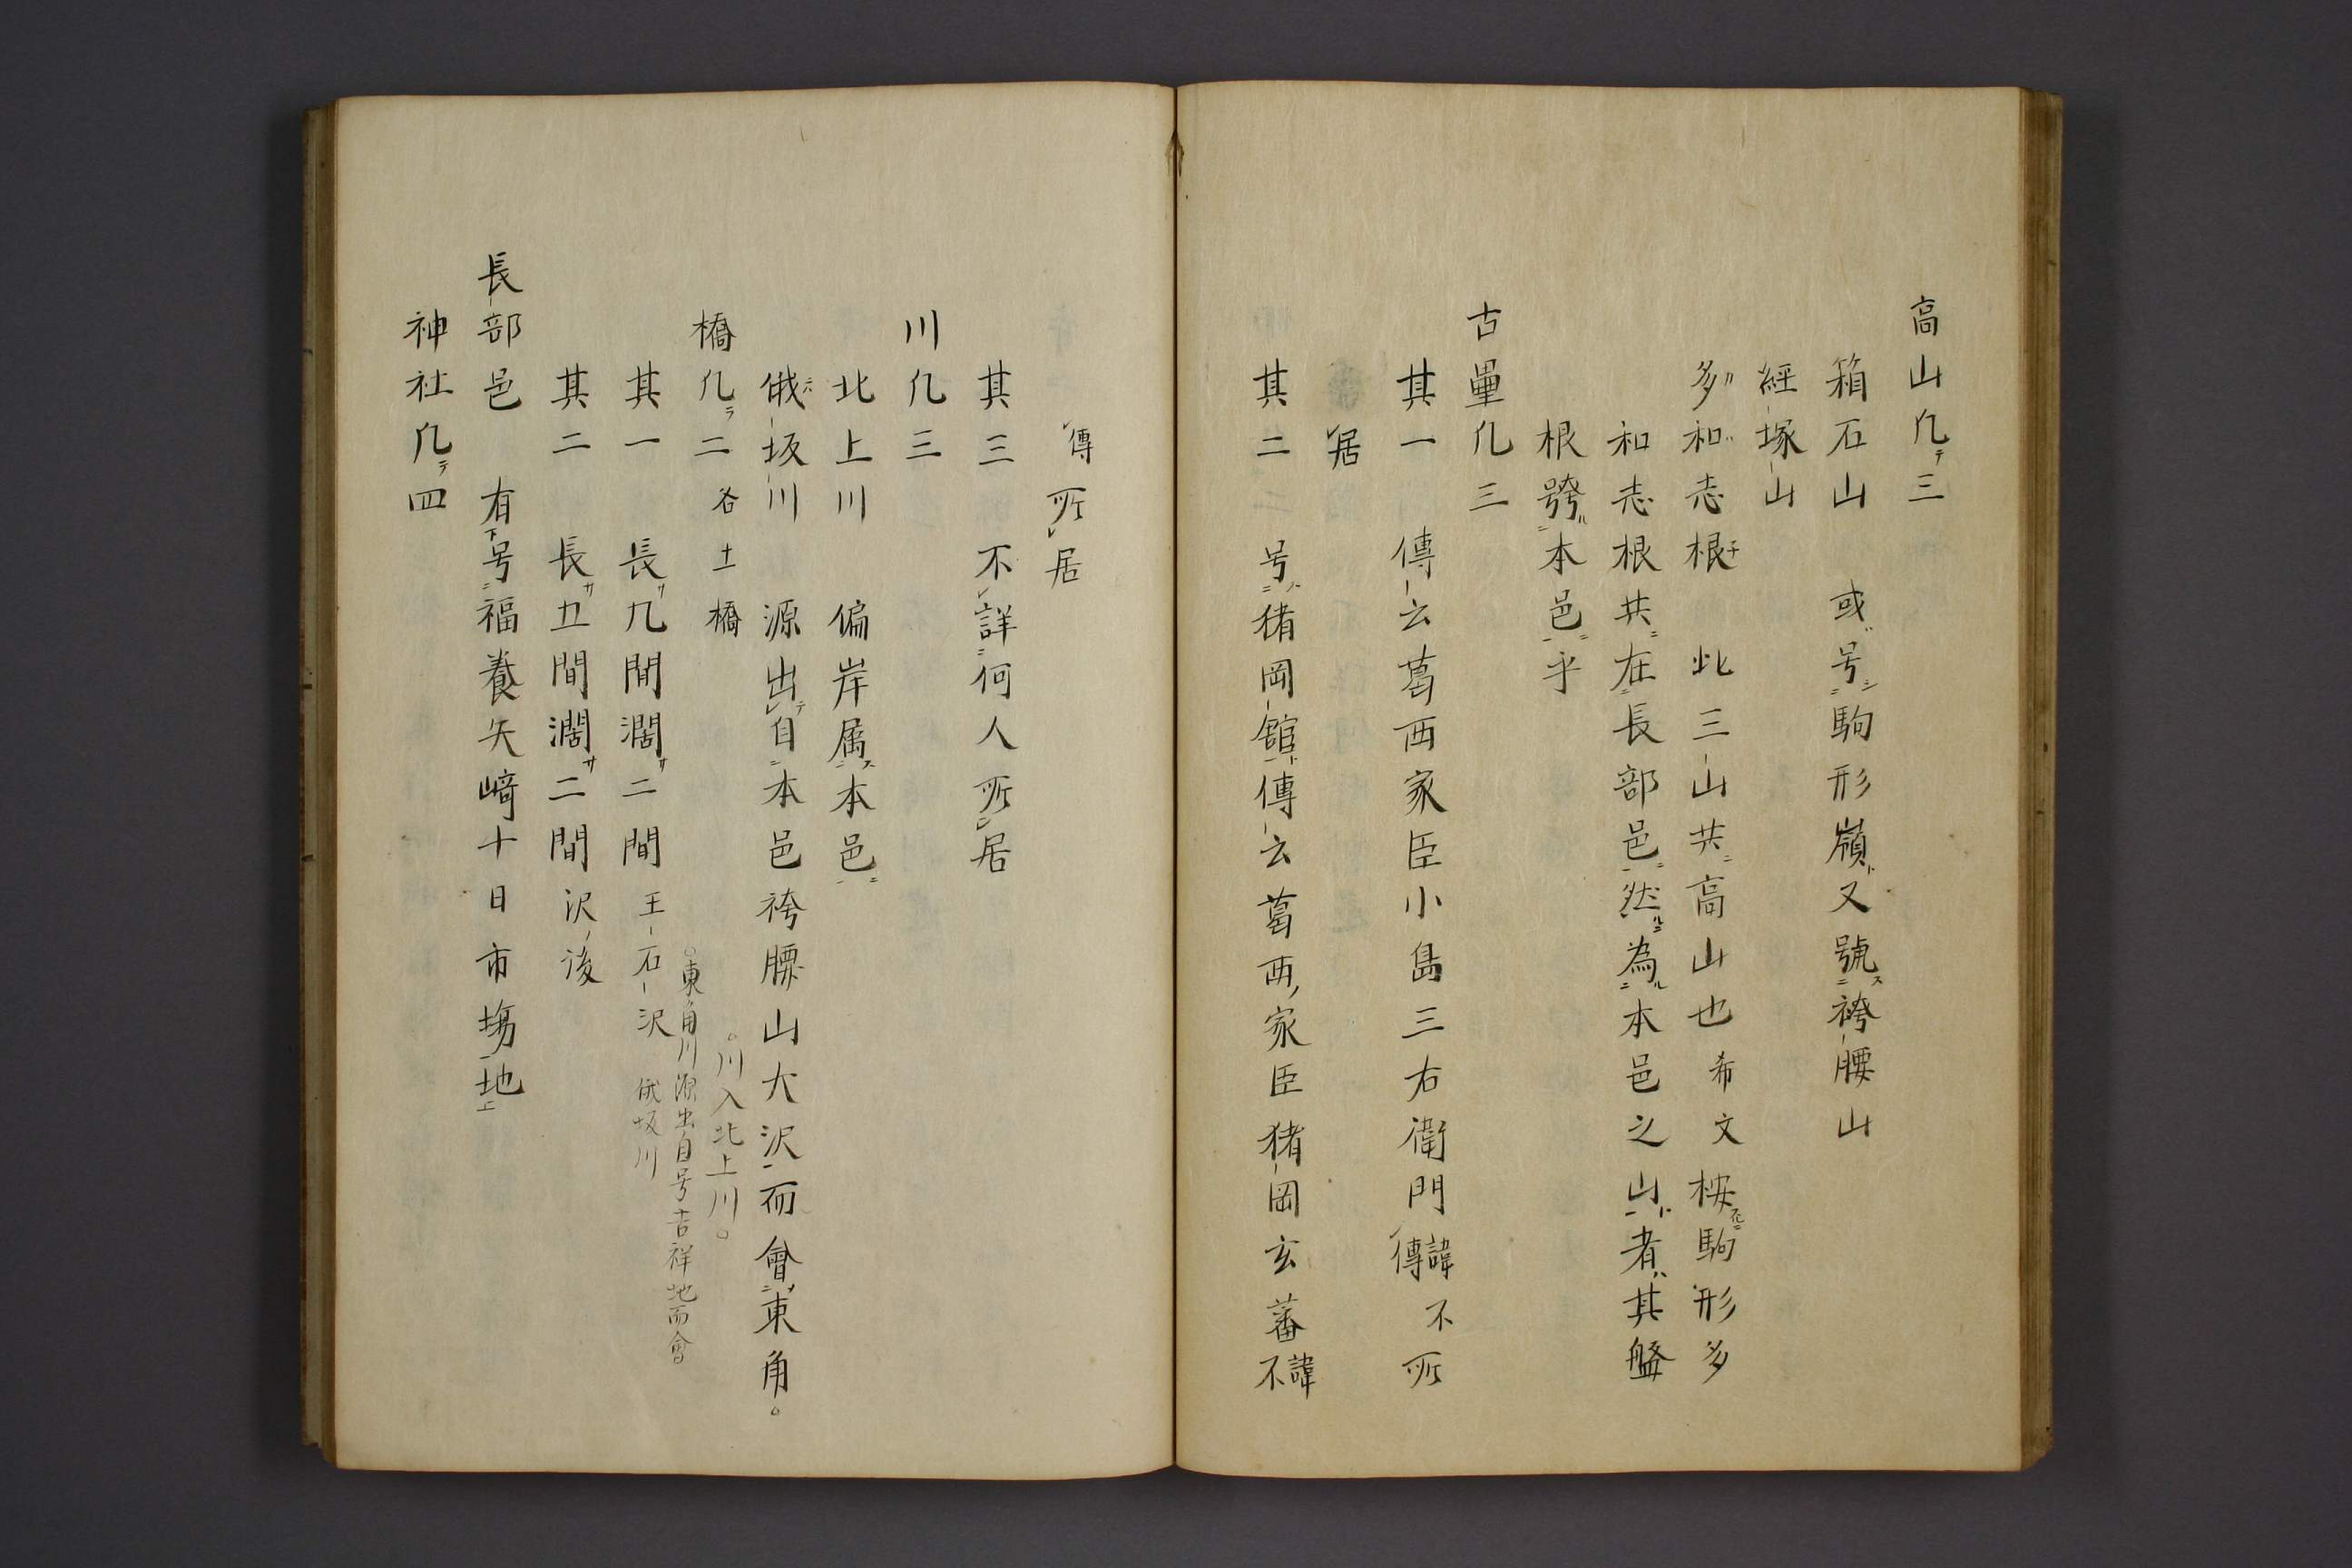 高山凡三
箱石山　或号駒形嶺又號袴腰山
經塚山
多和志根　此三山共高山也希文桉駒形多
和志根共在長部邑然為本邑之山者其盤
根跨本邑乎
古壘凡三
其一　傳云葛西家臣小島三右衛門諱不傳所
居
其二　号猪岡館傳云葛西家臣猪岡玄蕃諱不
傳所居
其三　不詳何人所居
川凡三
北上川　偏岸属本邑
俄坂川　源出自本邑袴腰山大沢而會東角。
。川入北上川。
橋凡二各土橋
。東角川源出自号吉祥地而會
俄坂川
其一　長九間濶二間王石沢
其二　長五間濶二間沢後
長部邑　有号福養矢﨑十日市場地
神社凡四